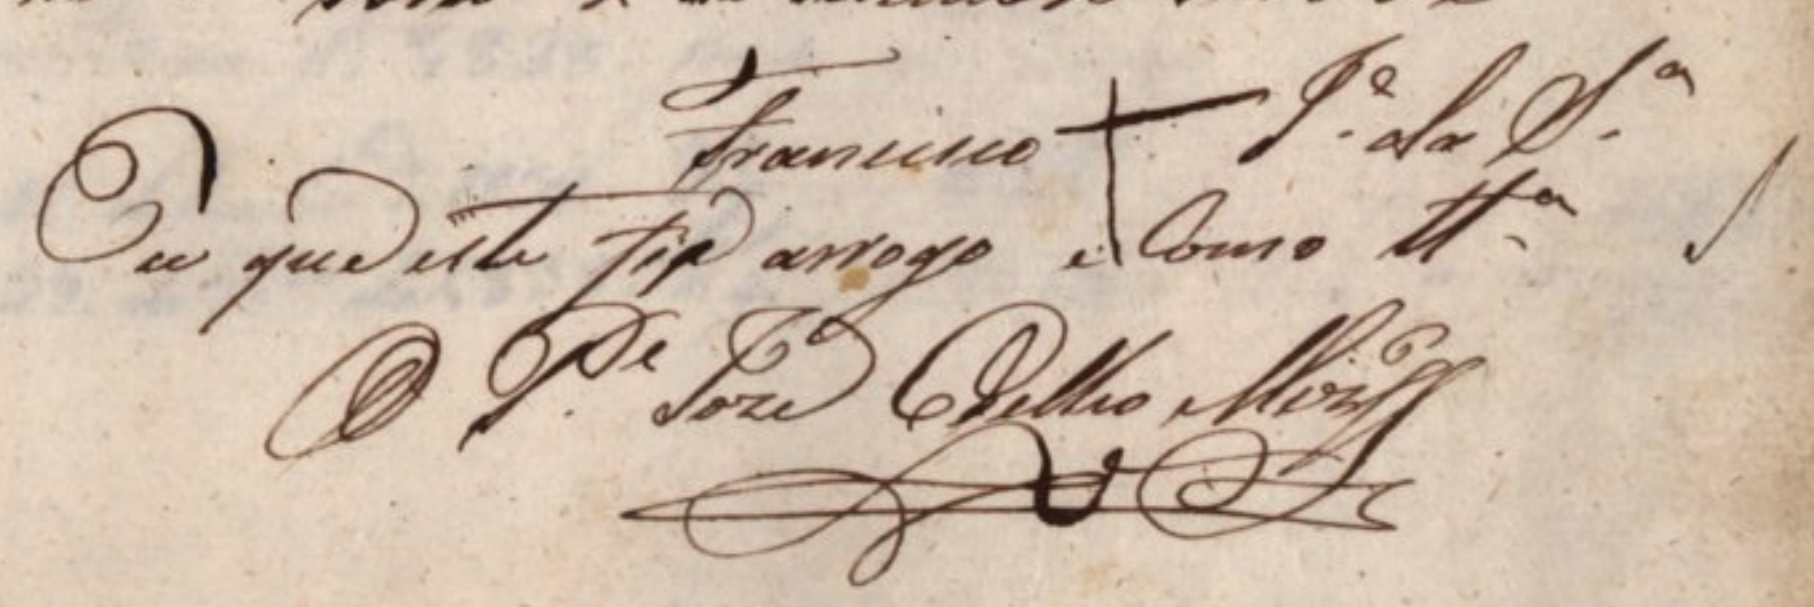 Francisco + Je. da Sa.
Eu que este fiz arrogo e Como tta.
O Pe. Joze Coelho